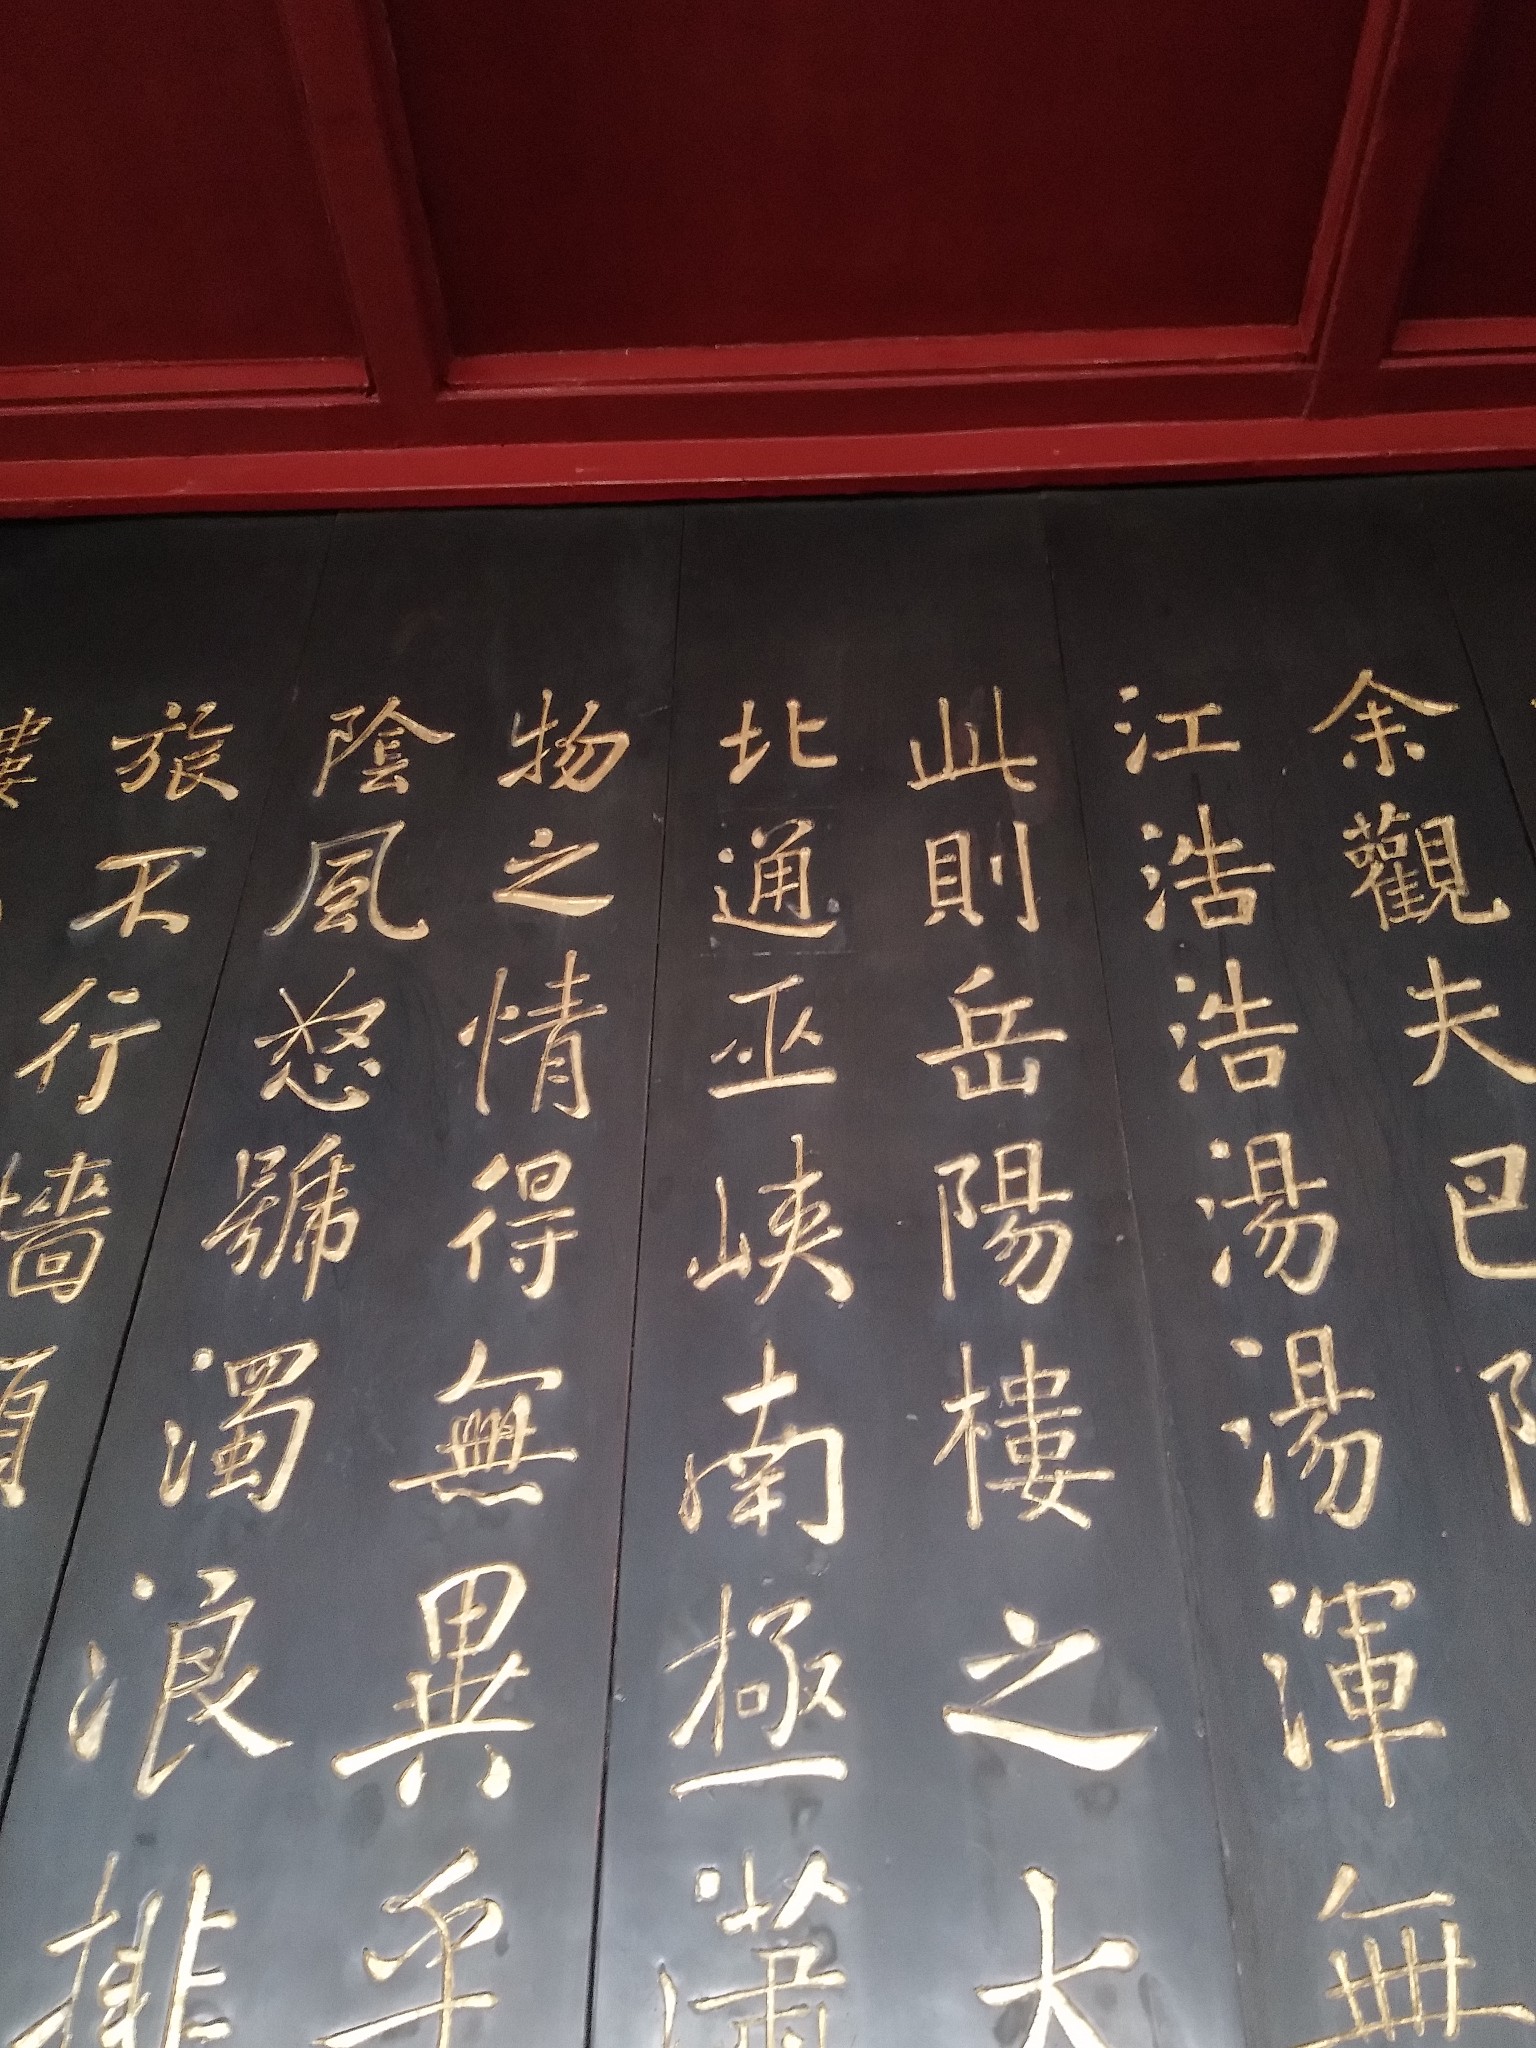 余觀夫巴
江浩浩湯湯渾無
此則岳陽樓之大
北通巫峽南極瀟
物之情得無異乎
陰風怒號濁浪排
旅不行檣